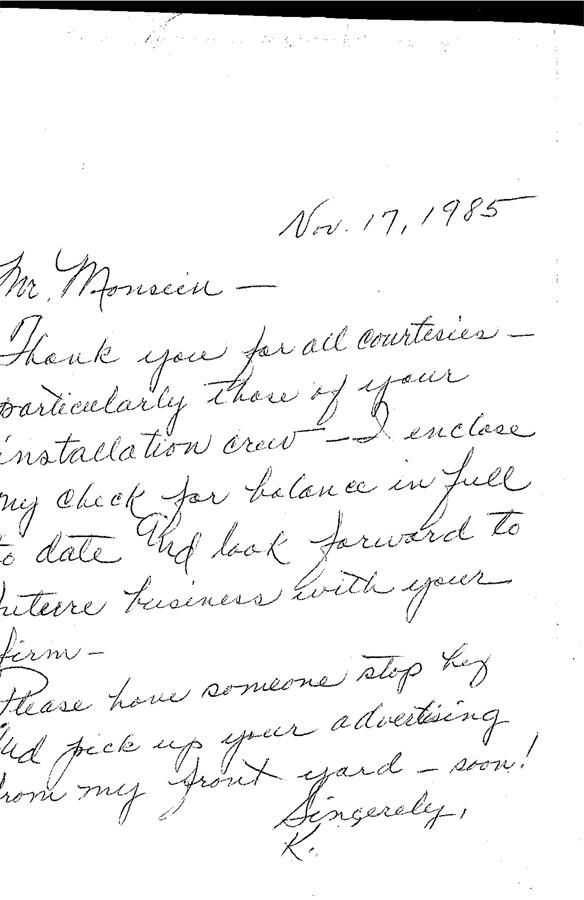 Nov. 17, 1985
Mr. Monseen —
Thank you for all courtesies —
particularly those of your
installation crew — I enclose
my check for balance in full
to date And look forward to
future business with your
firm —
Please have someone stop by
And pick up your advertising
from my front yard — soon!
Sincerely,
K.